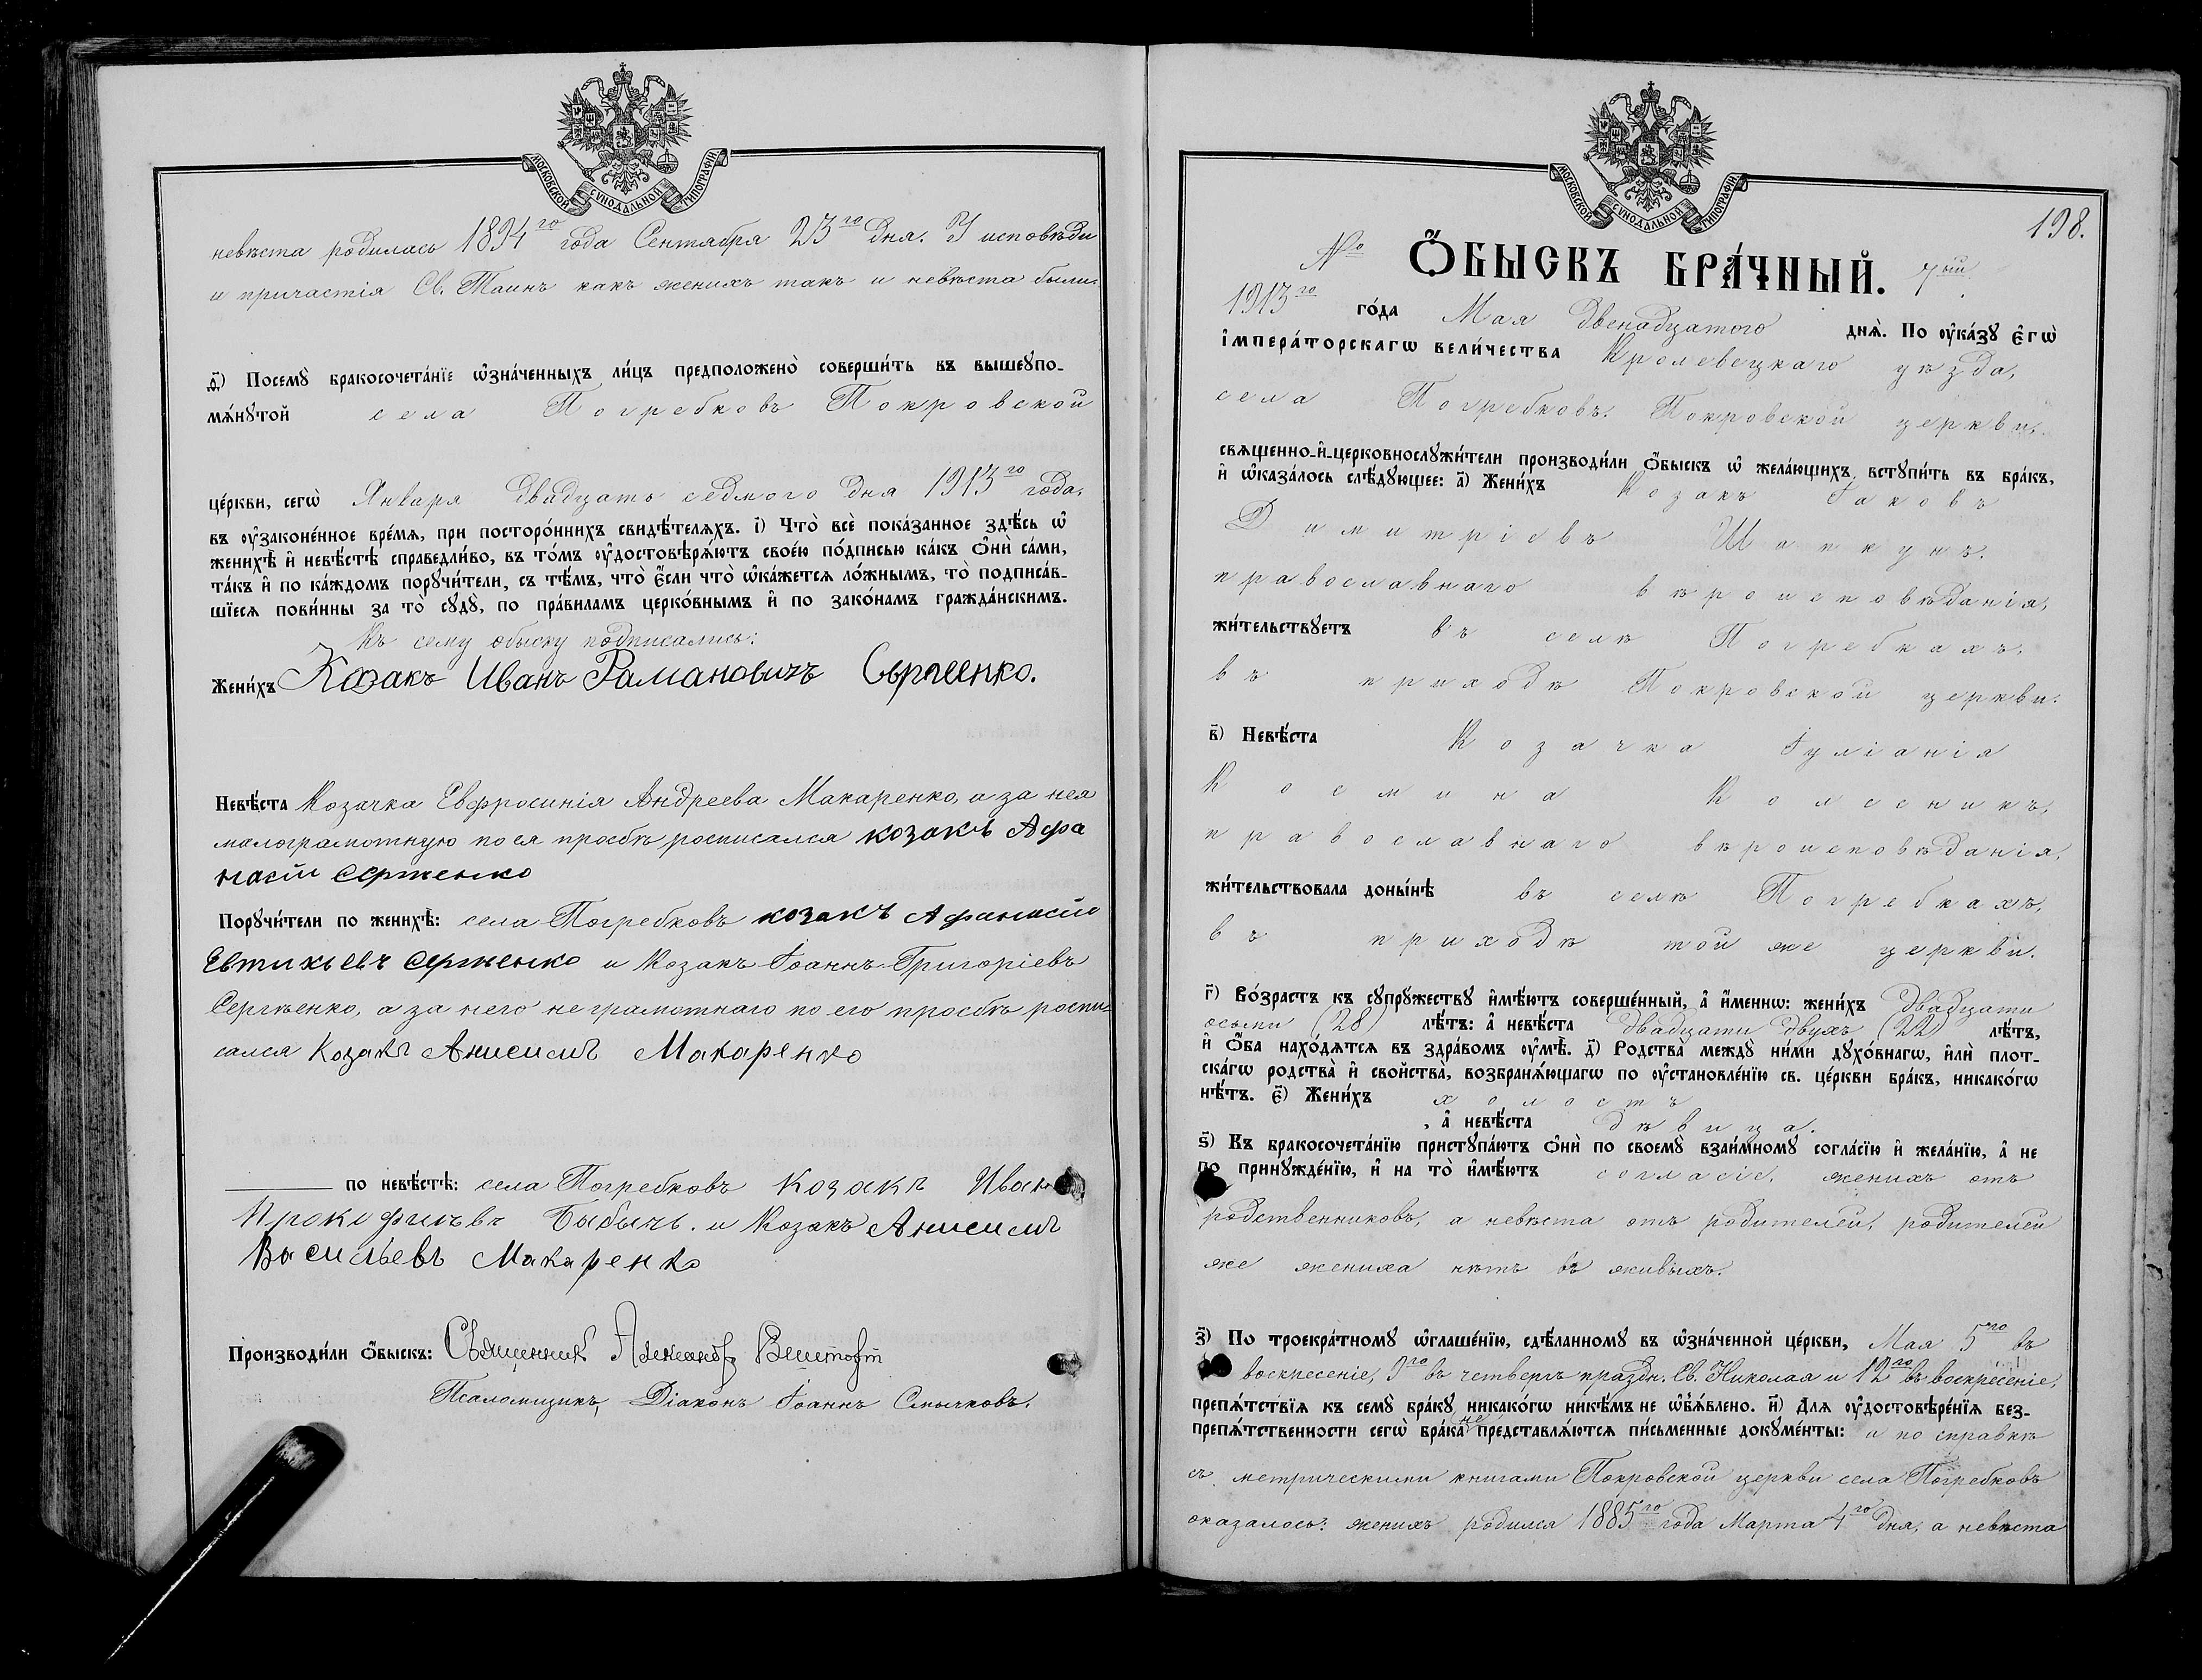 МОСКОВСКОЙ СѴНОДАЛЬНОЙ ТИПОГРАФІИ
невѣста родилась 1894го года Сентября 23го дня. У исповѣди
и причастія Св. Таинъ какъ женихъ такъ и невѣста были.
д҃) Посемꙋ̀ бракосочета́нїе ѡ҆зна́ченныхъ ли́цъ предположено̀ соверши́ть въ вышеꙋпо-
мѧ́нꙋтой села Погребковъ Покровской
це́ркви, сегѡ̀ Января двадцать седмого дня 1913го года,
въ ᲂу҆законе́нное вре́мѧ, при посторо́ннихъ свидѣ́телѧхъ. і҃) Что̀ всѐ пока́занное здѣ́сь ѡ҆
женихѣ̀ и҆ невѣ́стѣ справедли́во, въ то́мъ ᲂу҆достовѣрѧ́ютъ свое́ю по́дписью ка́къ ѻ҆нѝ са́ми,
та́къ и҆ по ка́ждомъ порꙋчи́тели, съ тѣ́мъ, что̀ є҆́сли что̀ ѡ҆ка́жетсѧ ло́жнымъ, то̀ подписа́в-
шїесѧ пови́нны за то̀ сꙋдꙋ̀, по пра́виламъ церко́внымъ и҆ по зако́намъ гражда́нскимъ.
Къ сему обыску подписались:
Жени́хъ Казакъ Иванъ Рамановичъ Сѣргеенко.
Невѣ́ста Козачка Евфросинія Андреева Макаренко, а за нея
малограмотную по ея просбѣ росписался козакъ Афа
насій Сергиенко
Порꙋчи́тели по женихѣ̀: села Погребковъ козакъ Афанасій
Евтихьевъ Сергиенко и Козакъ Іоаннъ Григоріевъ
Сергѣенко, а за него неграмотнаго по его просбѣ роспи-
сался Козакъ Анисимъ Макаренко
по невѣ́стѣ: села Погребковъ Козакъ Иван
Прокофиевъ и Козакъ Анисимъ
Васильевъ Макаренко
Производи́ли ѻ҆́быскъ: Священникъ
Псаломщикъ, Діаконъ Іоаннъ Смычковъ.
МОСКОВСКОЙ СѴНОДАЛЬНОЙ ТИПОГРАФІИ
198.
№ Ѻ҆́БЫСКЪ БРА́ЧНЫЙ. 7ый
1913го го́да Мая двенадцатого днѧ̀. По ᲂу҆ка́зꙋ є҆гѡ̀
і҆мпера́торскагѡ вели́чества Кролевецкаго уѣзда,
села Погребковъ. Покровской церкви,
свѧщенно-и҆-церковнослꙋжи́тели производи́ли ѻ҆́быскъ ѡ҆ жела́ющихъ встꙋпи́ть въ бра́къ,
и҆ ѡ҆каза́лось слѣ́дꙋющее: а҃) Жени́хъ Козакъ Іаковъ
Димитріевъ Шапкунъ.
православнаго вѣроисповѣданія,
жи́тельствꙋетъ въ селѣ Погребкахъ,
въ приходѣ Покровской церкви.
в҃) Невѣ́ста Козачка Іуліанія
Космина Колесникъ,
православнаго вѣроисповѣданія,
жи́тельствовала доны́нѣ въ селѣ Погребкахъ,
въ приходѣ той же церкви.
г҃) Во́зрастъ къ сꙋпрꙋжествꙋ и҆мѣ́ютъ соверше́нный, а҆ и҆́меннѡ: жени́хъ двадцати
осьми (28) лѣ́тъ: а҆ невѣ́ста двадцати двухъ (22) лѣ́тъ,
и҆ ѻ҆́ба нахо́дѧтсѧ въ здра́вомъ ᲂу҆мѣ̀. д҃) Родства̀ междꙋ̀ ни́ми дꙋхо́внагѡ, и҆лѝ плот-
ска́гѡ родства̀ и҆ свойства̀, возбранѧ́ющагѡ по ᲂу҆становле́нїю св. це́ркви бра́къ, никако́гѡ
нѣ́тъ. є҃) Жени́хъ холостъ
, а҆ невѣ́ста дѣвица.
ѕ҃) Къ бракосочета́нїю пристꙋпа́ютъ ѻ҆нѝ по своемꙋ̀ взаи́мномꙋ согла́сїю и҆ жела́нїю, а҆ не
по принꙋжде́нїю, и҆ на то̀ и҆мѣ́ютъ согласіе, женихъ отъ
родственниковъ, а невѣста отъ родителей, родителей
же жениха нѣтъ въ живыхъ.
з҃) По троекра́тномꙋ ѡ҆глаше́нїю, сдѣ́ланномꙋ въ ѡ҆зна́ченной це́ркви, Мая 5го въ
воскресеніе, 9го въ четвергъ праздн. Св. Николая и 12го въ воскресеніе,
препѧ́тствїѧ къ семꙋ̀ бра́кꙋ никако́гѡ никѣ́мъ не ѡ҆б̾ѧ́влено. и҃) Длѧ ᲂу҆достовѣре́нїѧ без-
препѧ́тственности сегѡ̀ бра́ка не представлѧ́ютсѧ пи́сьменные докꙋме́нты: и по справкѣ
съ метрическими книгами Покровской церкви села Погребковъ
оказалось: женихъ родился 1885го года Марта 4го дня, а невѣста